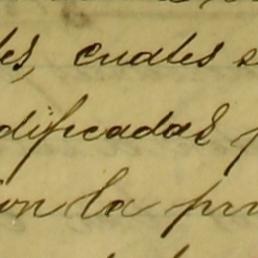 les, cuales s
dificadas p
ion la pri